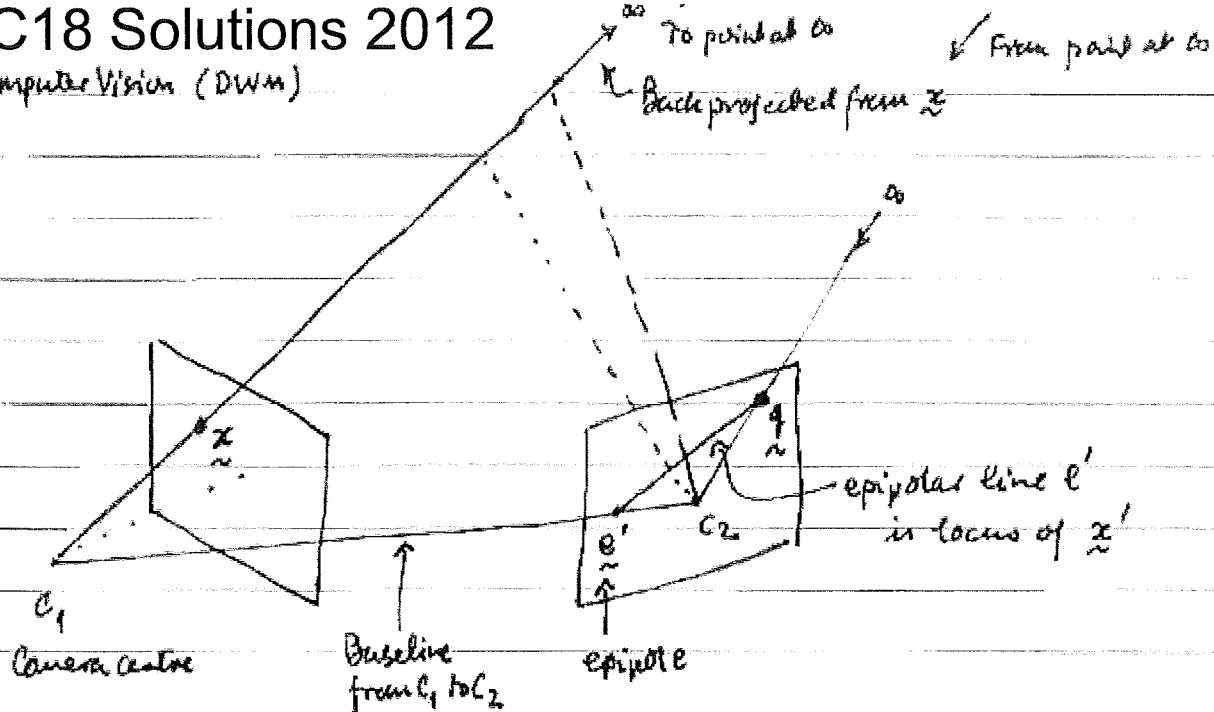 C18 Solutions 2012
mputer Vision (DWM)
∞ To point at ∞
From point at ∞
Back projected from x
∞
x
q
epipolar line l'
is locus of x'
e'
C2
C1
Camera centre
Baseline
from C1 to C2
epipole